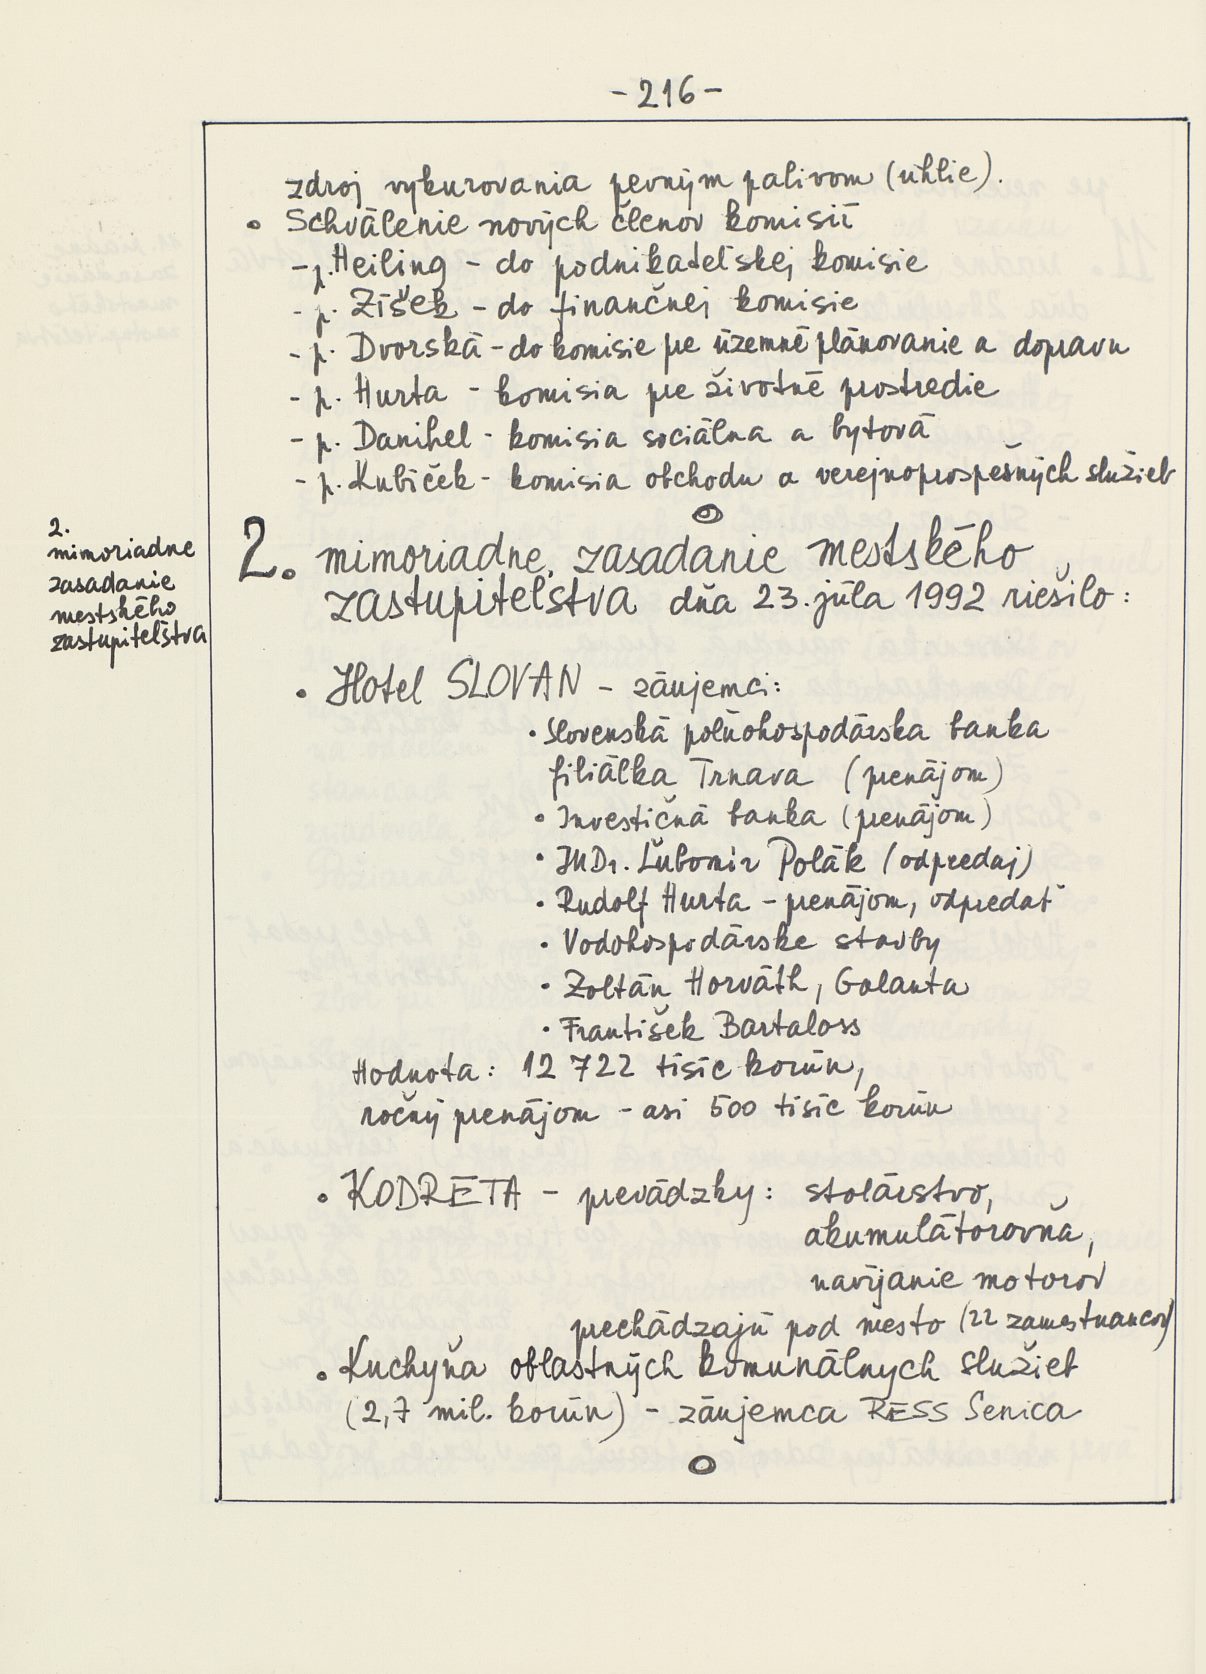 - 216 -
zdroj vykurovania pevným palivom (uhlie).
• Schválenie nových členov komisií
- p. Heiling - do podnikateľskej komisie
- p. Zíšek - do finančnej komisie
- p. Dvorská - do komisie pre územné plánovanie a dopravu
- p. Hurta - komisia pre životné prostredie
- p. Danihel - komisia sociálna a bytová
- p. Kubíček - komisia obchodu a verejnoprospešných služieb
2.
mimoriadne
zasadanie
mestského
zastupiteľstva
2. mimoriadne zasadanie mestského
zastupiteľstva dňa 23. júla 1992 riešilo:
• Hotel SLOVAN - záujemci:
• Slovenská poľnohospodárska banka
filiálka Trnava (prenájom)
• Investičná banka (prenájom)
• JUDr. Ľubomír Polák (odpredaj)
• Rudolf Hurta - prenájom, odpredať
• Vodohospodárske stavby
• Zoltán Horváth, Galanta
• František Bartaloss
Hodnota: 12 722 tisíc korún,
ročný prenájom - asi 500 tisíc korún
• KODRETA - prevádzky: stolárstvo,
akumulátorovňa,
navíjanie motorov
prechádzajú pod mesto (22 zamestnancov)
• Kuchyňa oblastných komunálnych služieb
(2,7 mil. korún) - záujemca RESS Senica